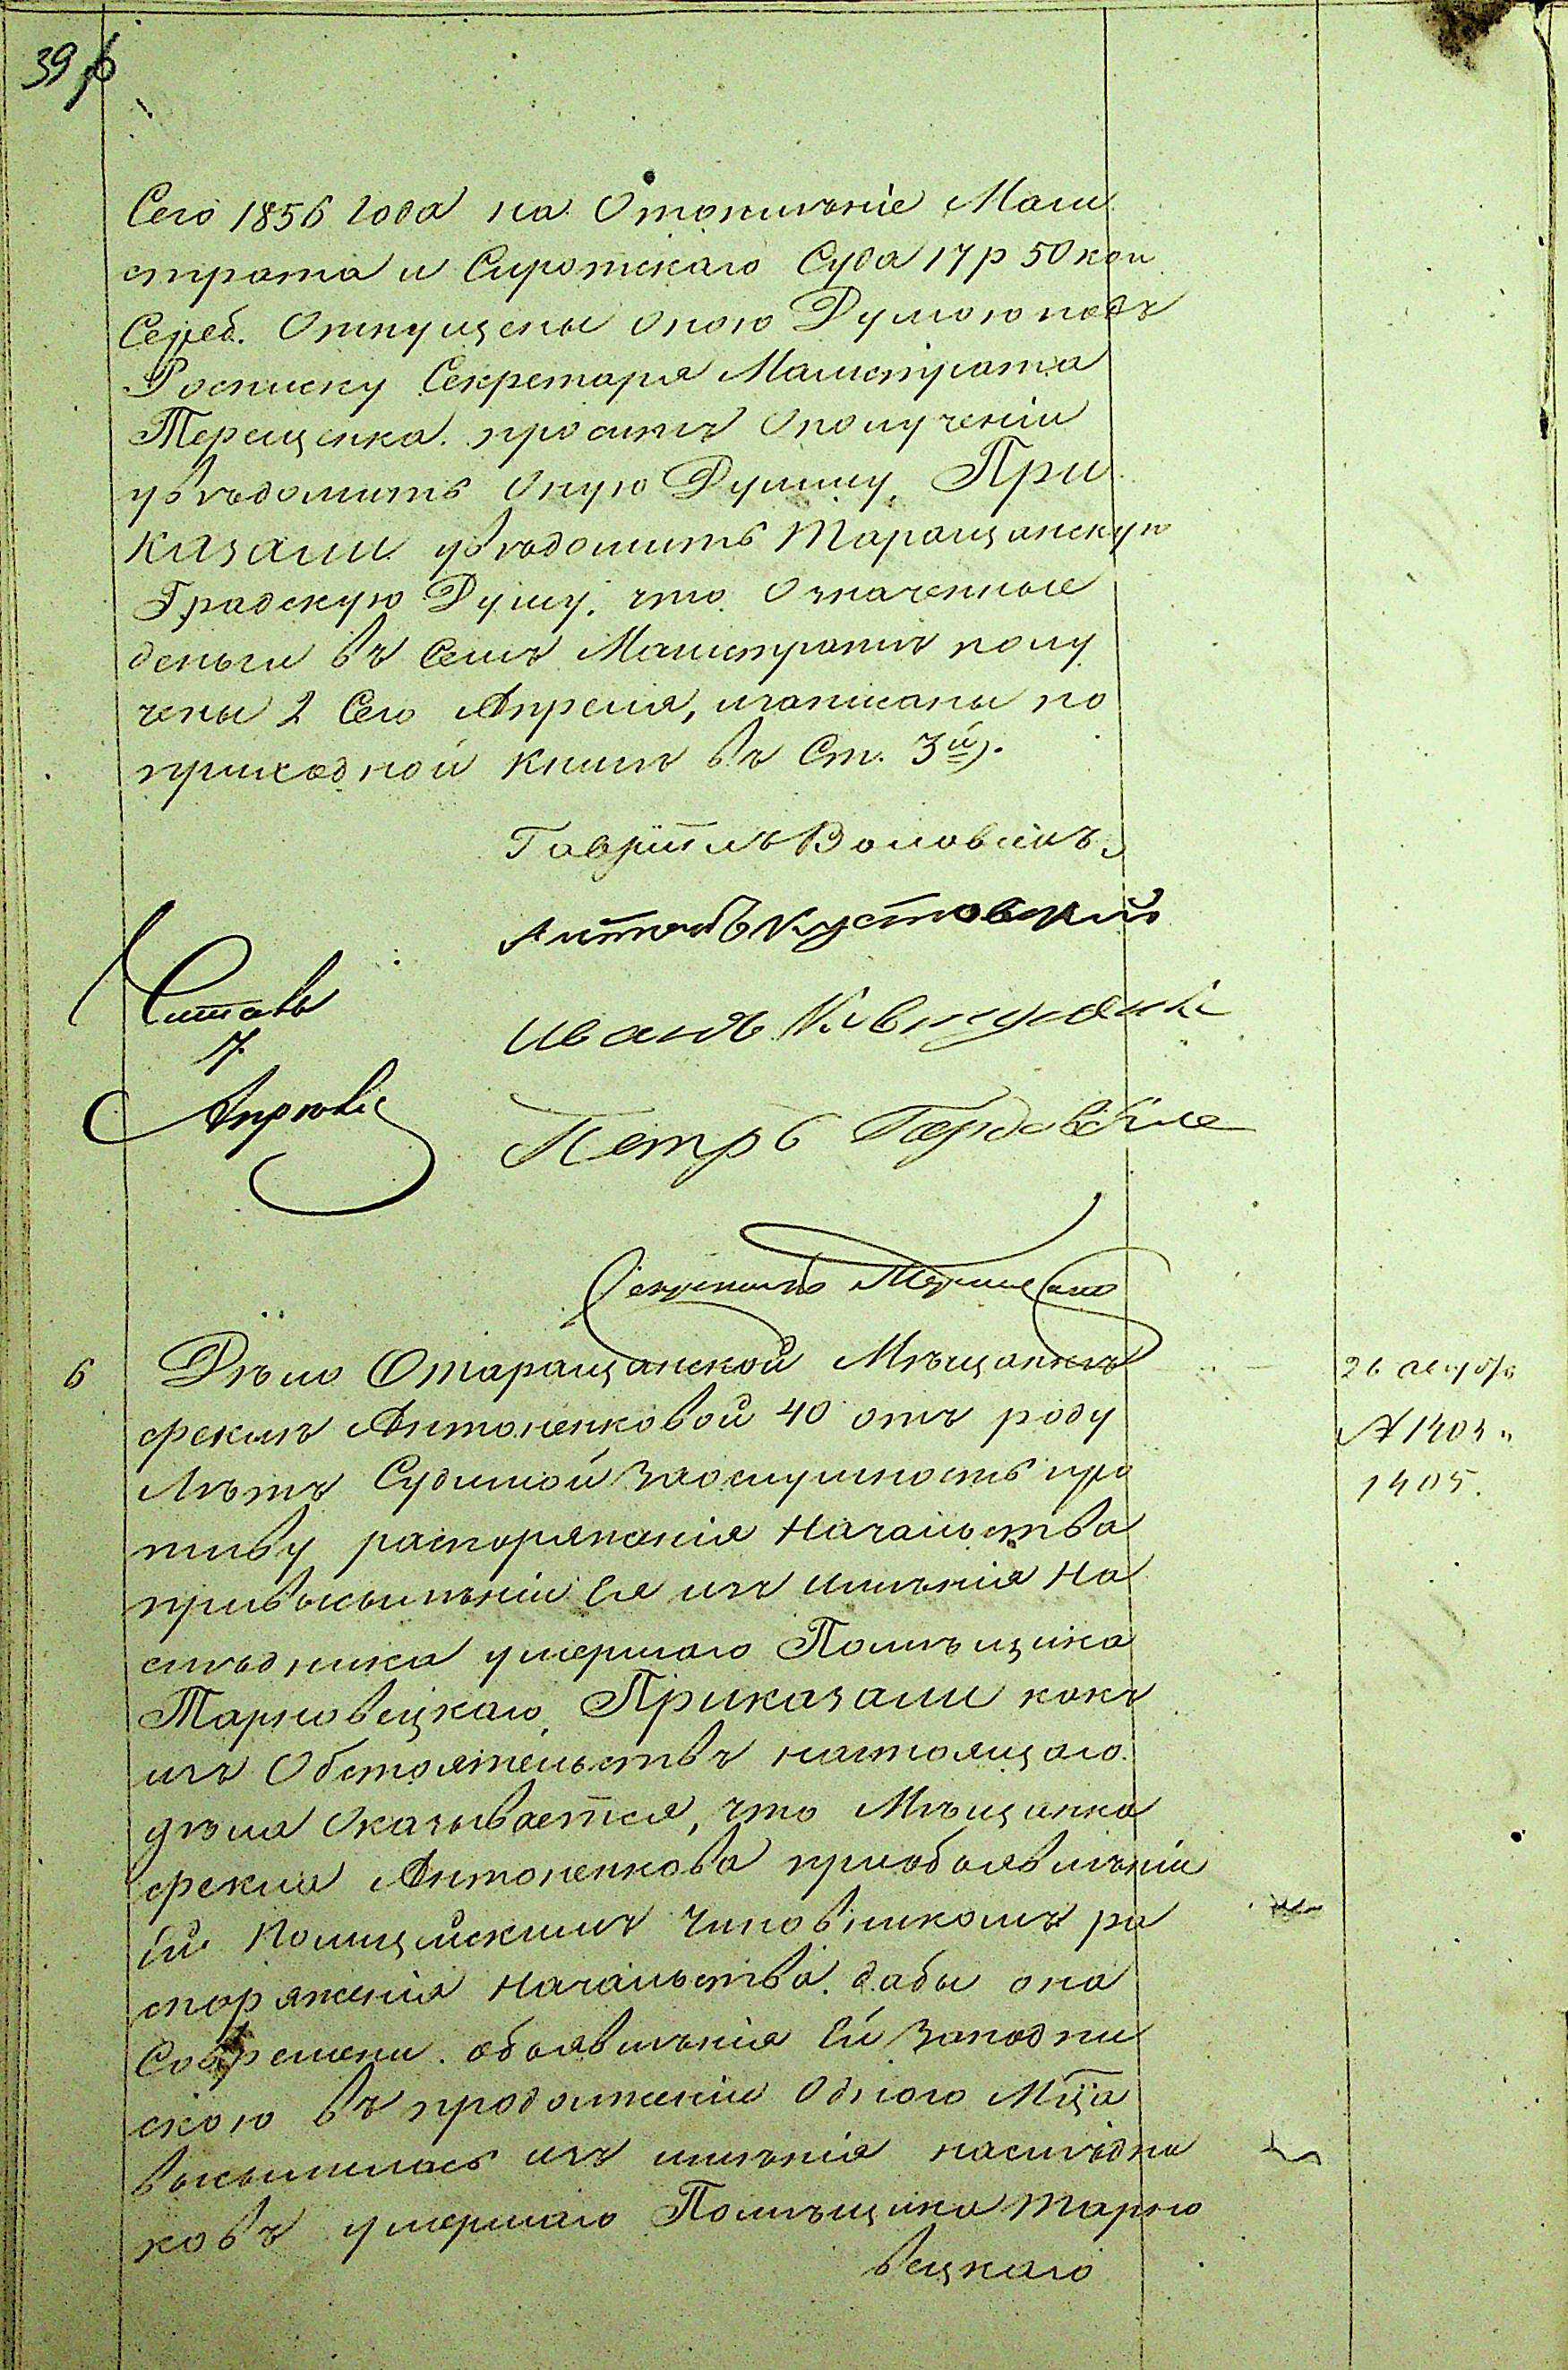 39
Сего 1856 года на Отопленіе Маги
страта и Сиротскаго Суда 17 р 50 коп
Сереб. Отпущены оною Думою подъ
Росписку Секретаря Магистрата
Терещенка. проситъ о полученіи
увѣдомить оную Думму, При
казали увѣдомить Таращанскую
Градскую Думу, что означенные
деньги въ семъ Магистратѣ полу
чены 2 Сего Апреля, изаписаны по
приходной книгѣ въ Ст. 3й).
Гавріилъ Воловикъ
Антонъ Кустовский
Иванъ
Петръ
Читалъ
7
Апреля
Секретарь Терещенко
6 Дѣло Отаращанской Мѣщанкѣ
Феклѣ Антоненковой 40 отъ роду
Лѣтъ Судимой заослушность про
тиву распоряженія Начальства
привысылкѣніи Ея изъ имѣнія На
слѣдника умершаго Помѣщика
Тарновецкаго, Приказали какъ
изъ Обстоятельствъ настоящаго
дѣла Оказывается, что Мѣщанка
Фекла Антоненкова приобъявленіи
ій Полицейскимъ Чиновникомъ ра
споряженія Начальства, дабы она
Современи объявленія Ей заподпи
скою въ продолженіи Одного Мца
выселилась изъ имѣнія наслѣдни
ковъ умершаго Помѣщика Тарно
вецкаго
26
№ 1404 и
1405.